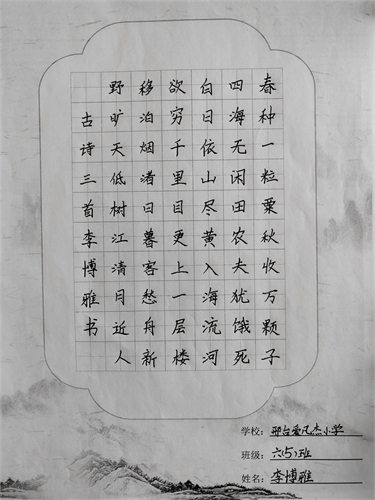 春种一粒粟秋收万颗子
四海无闲田农夫犹饿死
白日依山尽黄入海流河
欲穷千里目更上一层楼
移泊烟渚日暮客愁舟新
野旷天低树江清月近人
古诗三首李博雅书
学校：邢台小学
班级：六(5)班
姓名：李博雅